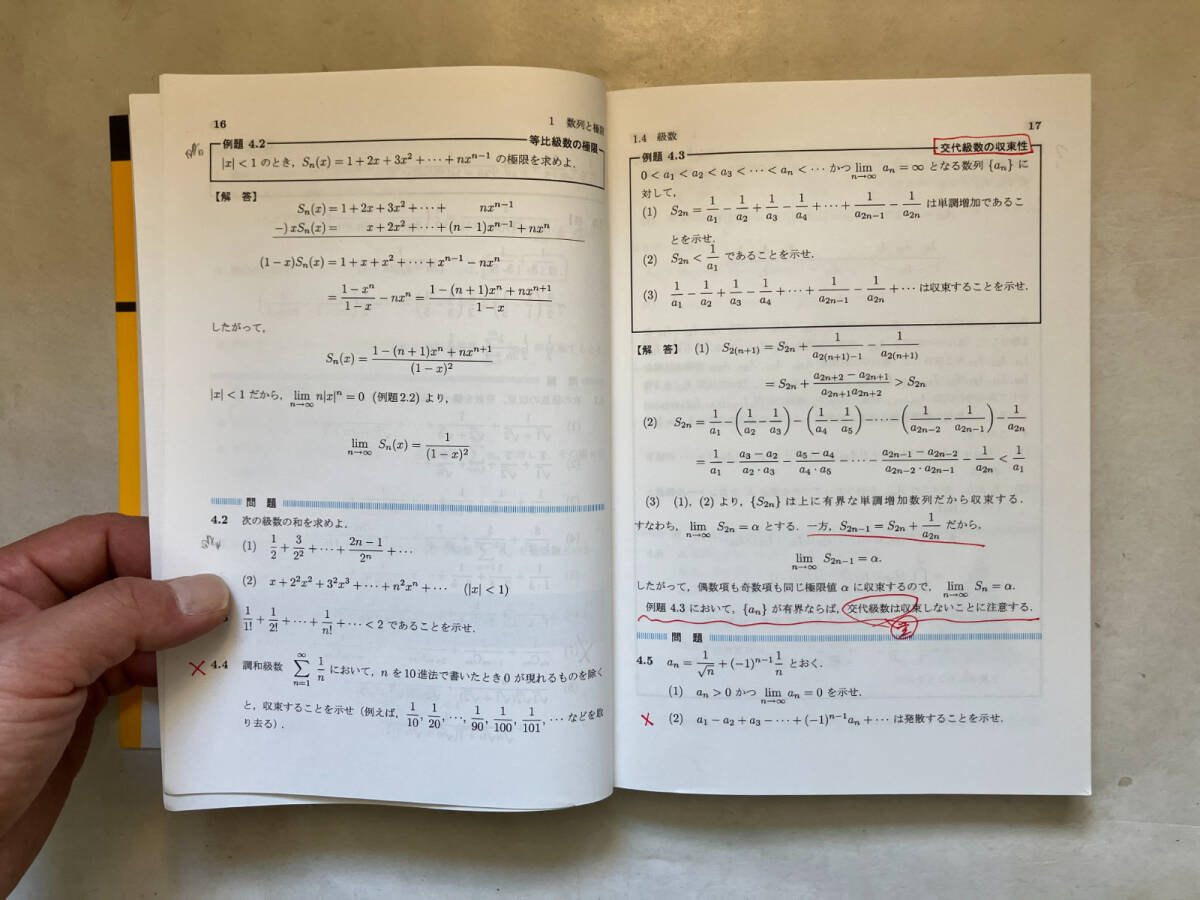 16
1 数列と極限
例題 4.2
等比級数の極限
|x| < 1 のとき, Sₙ(x) = 1 + 2x + 3x² + ⋯ + nxⁿ⁻¹ の極限を求めよ.
【解 答】
Sₙ(x) = 1 + 2x + 3x² + ⋯ + nxⁿ⁻¹
−) xSₙ(x) = x + 2x² + ⋯ + (n−1)xⁿ⁻¹ + nxⁿ
(1−x)Sₙ(x) = 1 + x + x² + ⋯ + xⁿ⁻¹ − nxⁿ
= (1−xⁿ)/(1−x) − nxⁿ = (1−(n+1)xⁿ+nxⁿ⁺¹)/(1−x)
したがって,
Sₙ(x) = (1−(n+1)xⁿ+nxⁿ⁺¹)/(1−x)²
|x| < 1 だから, lim n→∞ n|x|ⁿ = 0 (例題 2.2) より,
lim n→∞ Sₙ(x) = 1/(1−x)²
問 題
4.2 次の級数の和を求めよ.
(1) 1/2 + 3/2² + ⋯ + (2n−1)/2ⁿ + ⋯
(2) x + 2²x² + 3²x³ + ⋯ + n²xⁿ + ⋯ (|x| < 1)
1/1! + 1/2! + ⋯ + 1/n! + ⋯ < 2 であることを示せ.
× 4.4 調和級数 ∑ n=1 ∞ 1/n において, n を 10 進法で書いたとき 0 が現れるものを除く
と, 収束することを示せ (例えば, 1/10, 1/20, ⋯, 1/90, 1/100, 1/101, ⋯ などを取
り去る).
1.4 級数
17
例題 4.3
交代級数の収束性
0 < a₁ < a₂ < a₃ < ⋯ < aₙ < ⋯ かつ lim n→∞ aₙ = ∞ となる数列 {aₙ} に
対して,
(1) S₂ₙ = 1/a₁ − 1/a₂ + 1/a₃ − 1/a₄ + ⋯ + 1/a₂ₙ₋₁ − 1/a₂ₙ は単調増加であるこ
とを示せ.
(2) S₂ₙ < 1/a₁ であることを示せ.
(3) 1/a₁ − 1/a₂ + 1/a₃ − 1/a₄ + ⋯ + 1/a₂ₙ₋₁ − 1/a₂ₙ + ⋯ は収束することを示せ.
【解 答】 (1) S₂₍ₙ₊₁₎ = S₂ₙ + 1/a₂₍ₙ₊₁₎₋₁ − 1/a₂₍ₙ₊₁₎
= S₂ₙ + (a₂ₙ₊₂ − a₂ₙ₊₁)/(a₂ₙ₊₁a₂ₙ₊₂) > S₂ₙ
(2) S₂ₙ = 1/a₁ − (1/a₂ − 1/a₃) − (1/a₄ − 1/a₅) − ⋯ − (1/a₂ₙ₋₂ − 1/a₂ₙ₋₁) − 1/a₂ₙ
= 1/a₁ − (a₃−a₂)/(a₂·a₃) − (a₅−a₄)/(a₄·a₅) − ⋯ − (a₂ₙ₋₁−a₂ₙ₋₂)/(a₂ₙ₋₂·a₂ₙ₋₁) − 1/a₂ₙ < 1/a₁
(3) (1), (2) より, {S₂ₙ} は上に有界な単調増加数列だから収束する.
すなわち, lim n→∞ S₂ₙ = α とする. 一方, S₂ₙ₋₁ = S₂ₙ + 1/a₂ₙ だから,
lim n→∞ S₂ₙ₋₁ = α.
したがって, 偶数項も奇数項も同じ極限値 α に収束するので, lim n→∞ Sₙ = α.
例題 4.3 において, {aₙ} が有界ならば, 交代級数は収束しないことに注意する.
問 題
4.5 aₙ = 1/√n + (−1)ⁿ⁻¹ 1/n とおく.
(1) aₙ > 0 かつ lim n→∞ aₙ = 0 を示せ.
× (2) a₁ − a₂ + a₃ − ⋯ + (−1)ⁿ⁻¹aₙ + ⋯ は発散することを示せ.